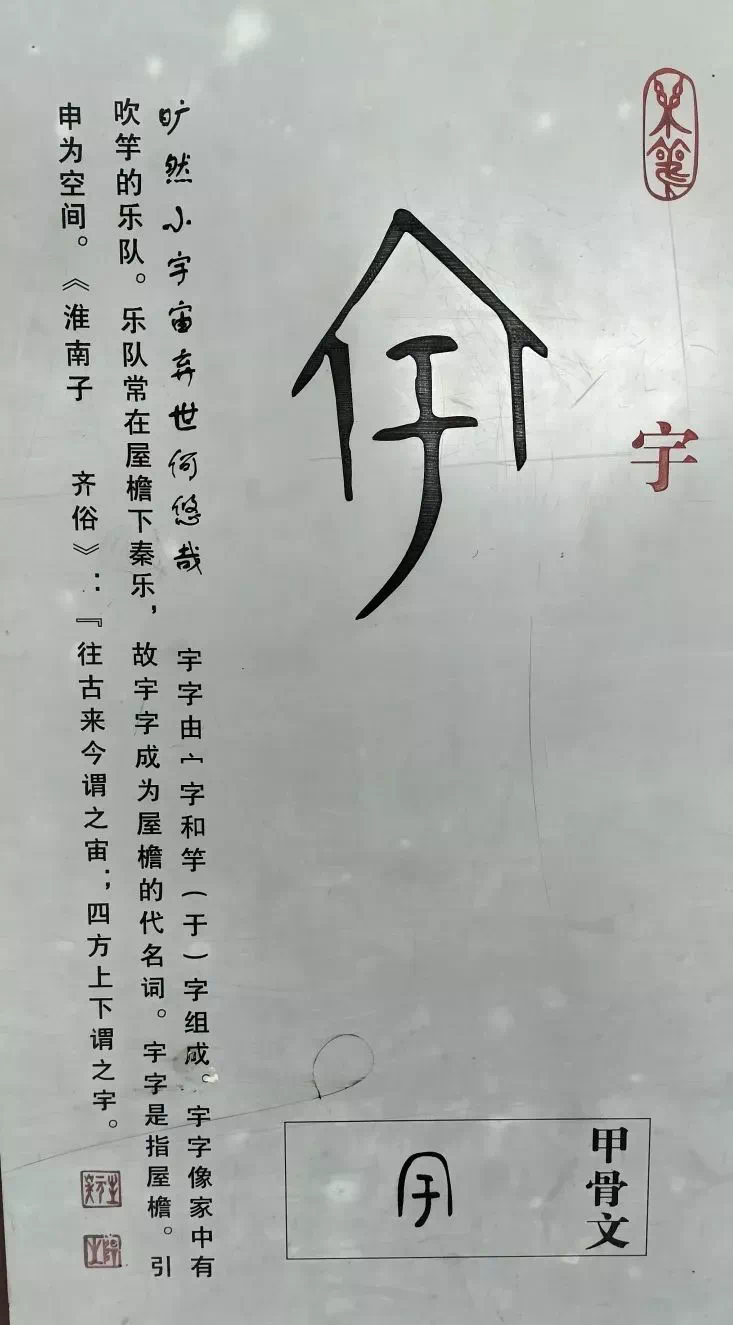 宇
甲骨文
旷然小宇宙弃世何悠哉　宇字由宀字和竽（于）字组成。宇字像家中有
吹竽的乐队。乐队常在屋檐下秦乐，故宇字成为屋檐的代名词。宇字是指屋檐。引
申为空间。《淮南子　齐俗》：『往古来今谓之宙；四方上下谓之宇。